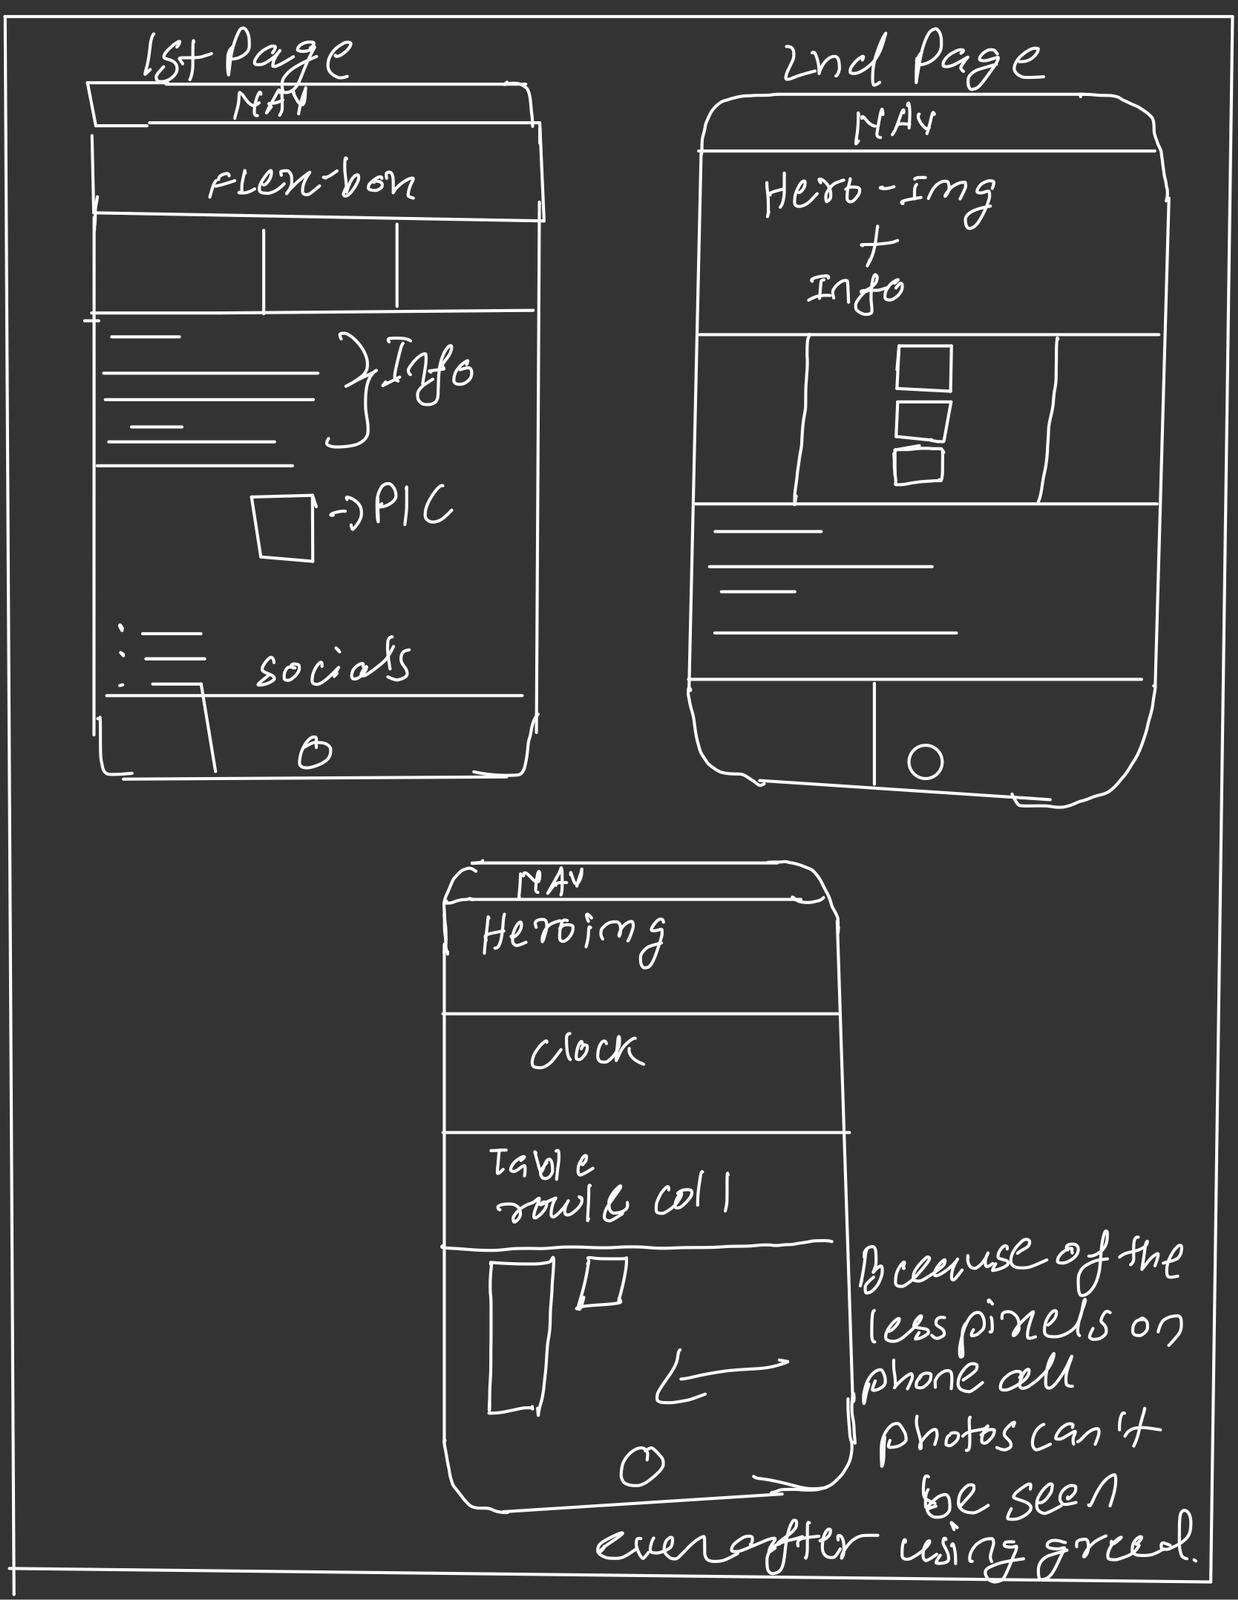 1st Page
NAV
FLex-box
Info
PIC
socials
2nd Page
NAV
Hero-Img
+
Info
NAV
Hero img
clock
Table
row1 & col 1
Because of the
less pixels on
phone all
photos can't
be seen
even after using greed.